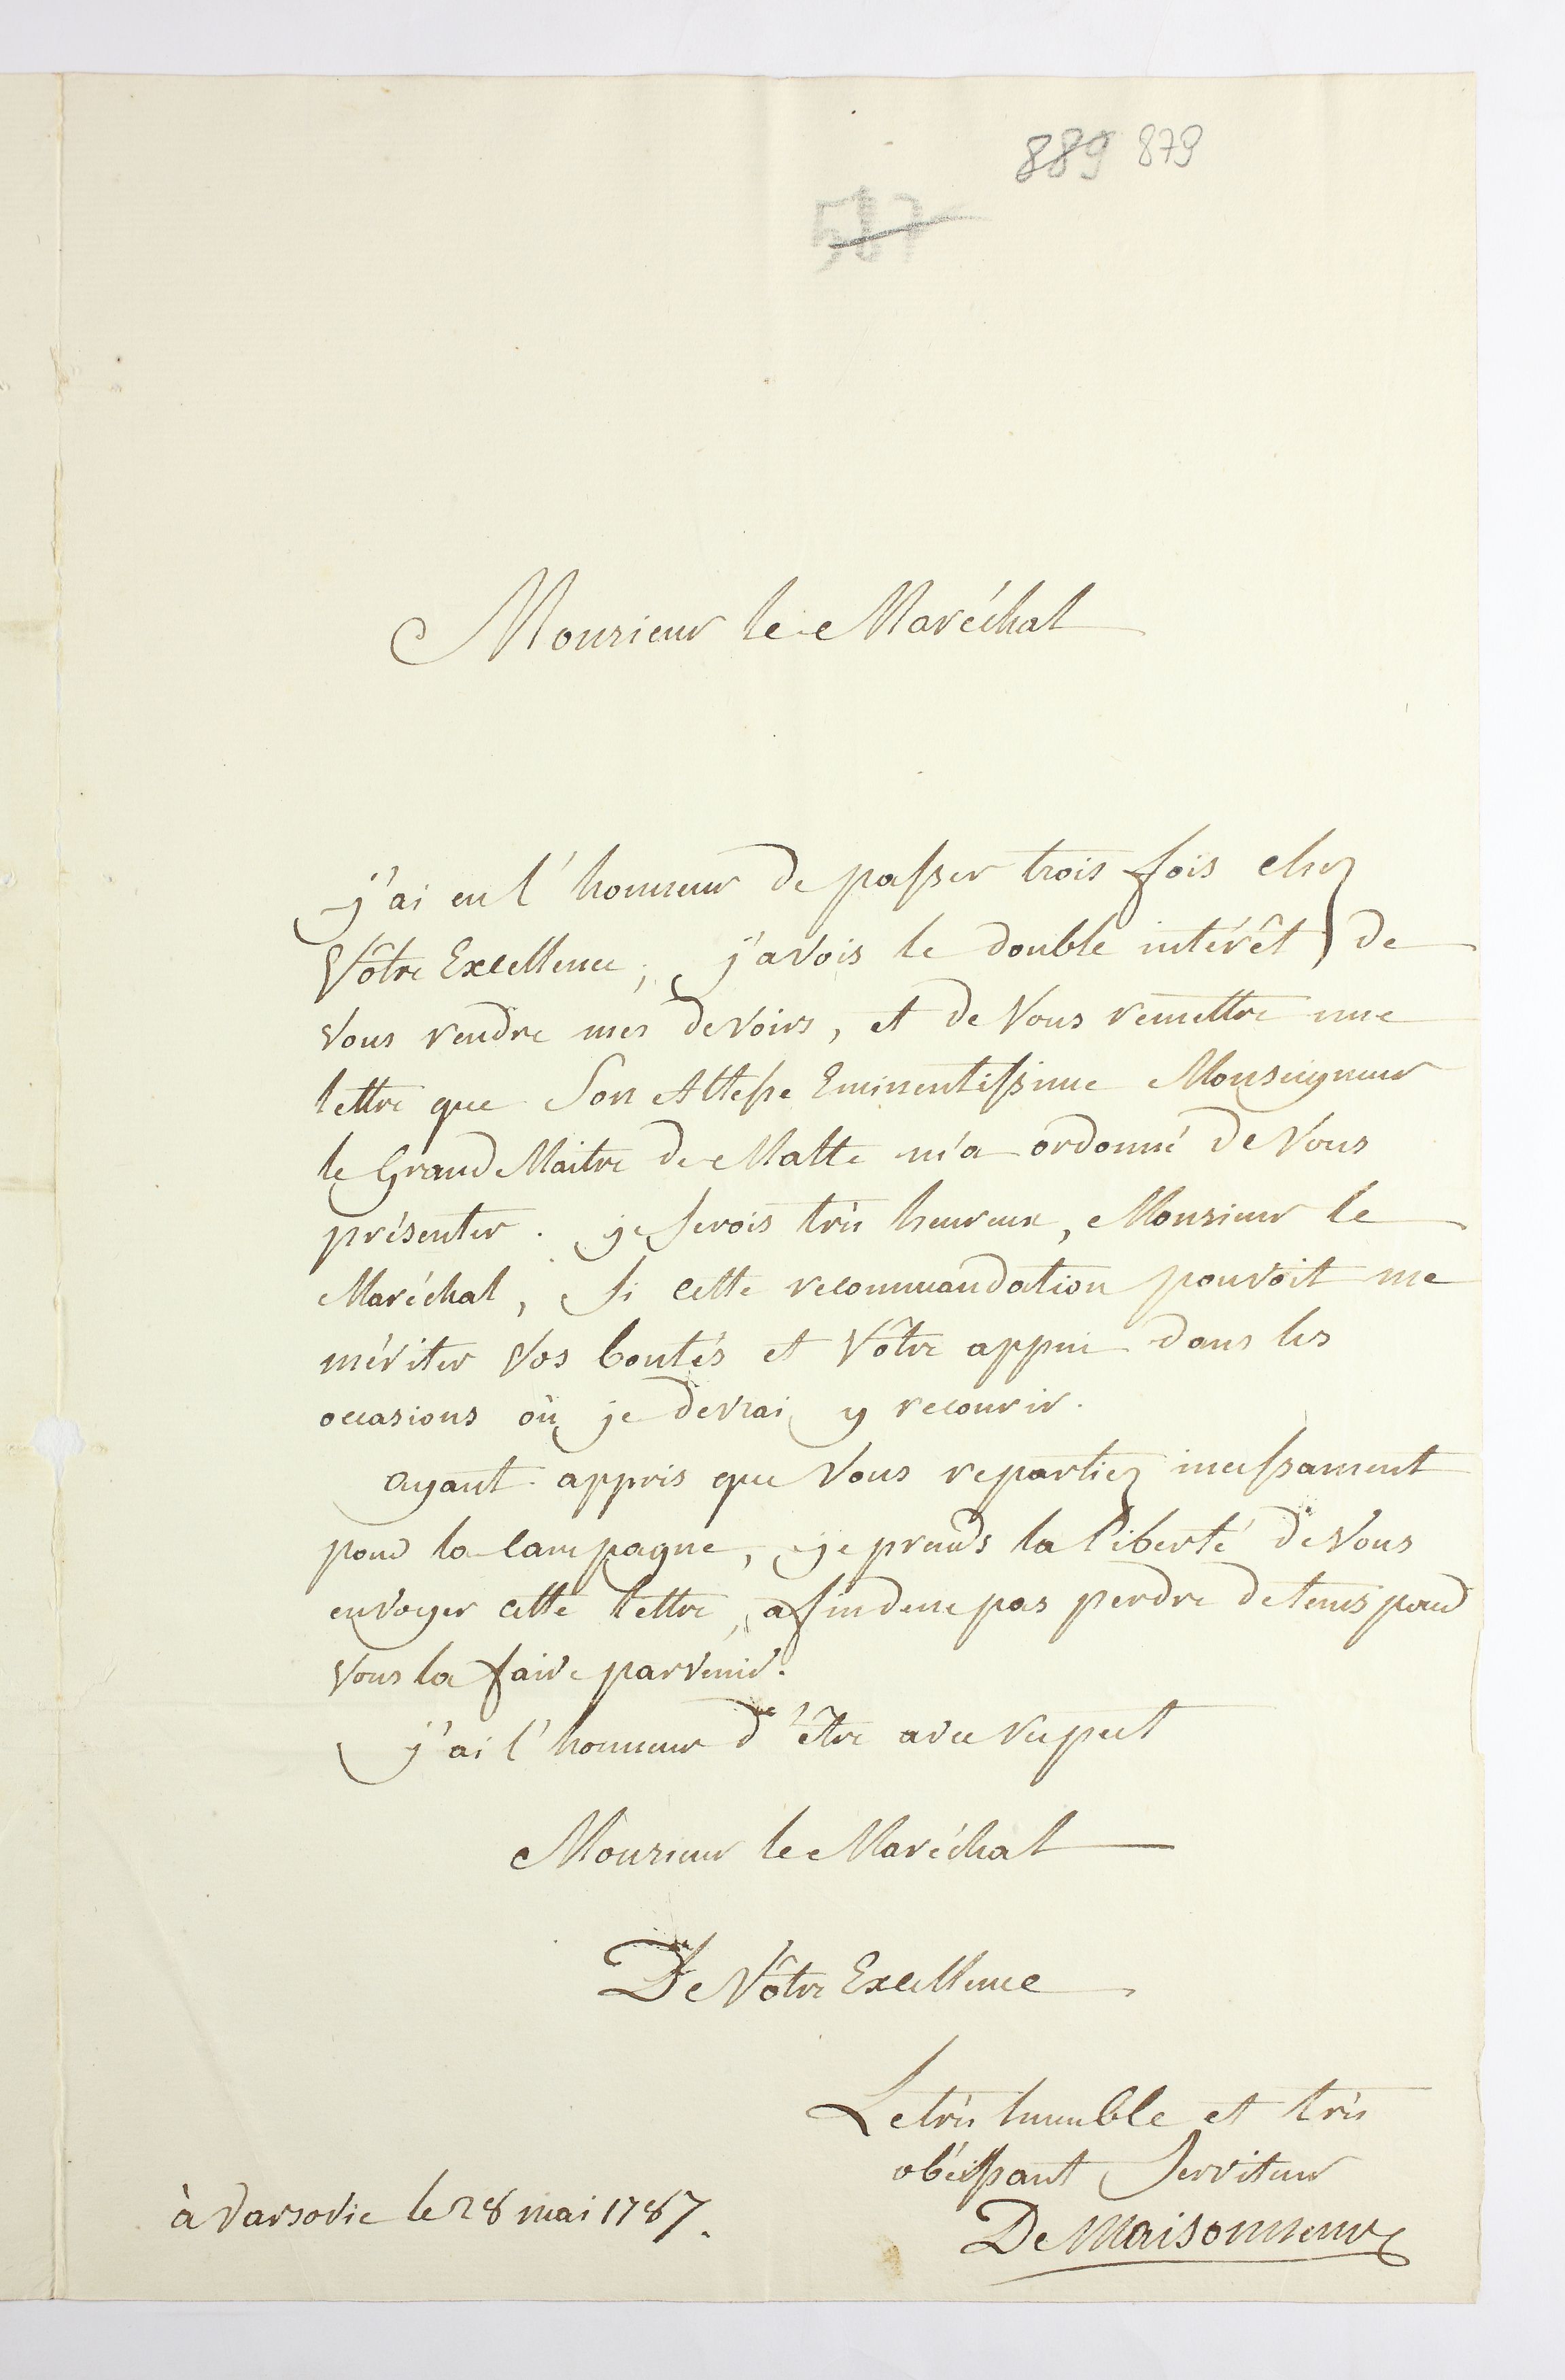 889 879
587
Monsieur le Maréchal
j'ai eu l'honneur de passer trois fois chez
Vôtre Excellence; j'avois le double intérêt de
Vous rendre mes devoirs, et de Vous remettre une
lettre que Son Altesse Eminentissime Monseigneur
le Grand Maitre de Malte m'a ordonné de Vous
présenter. je serois très heureux, Monsieur le
Maréchal, si cette recommandation pouvoit me
mériter Vos bontés et Vôtre appui dans les
occasions où je devrai y recourir.
ayant appris que Vous repartiez incessament
pour la Campagne, je prends la liberté de Vous
envoyer cette lettre, afin de ne pas perdre de tems pour
Vous la faire parvenir.
j'ai l'honneur d'être avec respect
Monsieur le Maréchal
De Vôtre Excellence
Le très humble et très
obéissant Serviteur
De Maisonneuve
à Varsovie le 28 mai 1787.